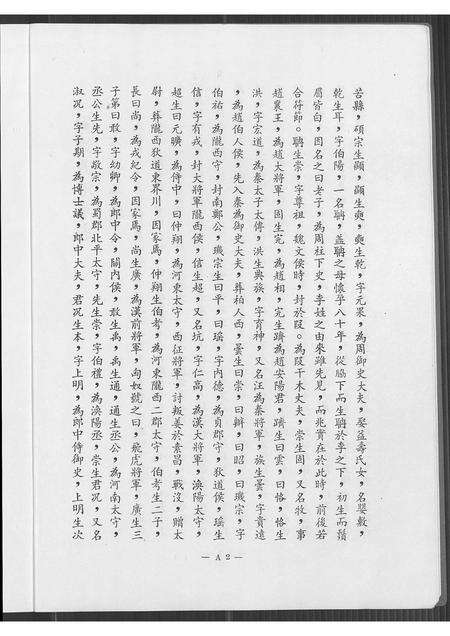 苦縣，碩宗生顯，顯生奭，奭生乾，字元果，為周御史大夫，娶益壽氏女，名嬰敷，
乾生耳，字伯陽，一名聃，盖聃之母懷孕八十年，從脇下而生聃於李之下，初生而鬚
眉皆白，因名之曰老子，為周柱下史，李姓之由來雖先見，而兆實在於此時，前後若
合符節。聃生宗，字尊祖，魏文侯時，封於段。為段干木丈夫，崇生固，又名牧，事
趙襄王，為趙大將軍，固生完，為趙相，完生躋為趙安陽君，躋生曰雲，曰恪，恪生
洪，字宏道，為秦太子太傅，洪生興族，字育神，又名汪為秦將軍，族生曇，字貴遠
，為趙伯人侯，先入秦為御史大夫，葬柏人西，曇生曰崇，曰辨，曰昭，曰璣宗，字
伯祐，為隴西守，封南鄭公，璣宗生曰平，曰瑶，字內德，為貞郡守，狄道侯，瑶生
信，字有戎，封大將軍隴西侯，信生超，又名坑，字仁高，為漢大將軍，漁陽太守，
超生曰元曠，為侍中，曰仲翔，為河東太守，西征將軍，討叛羌於素昌，戰沒，贈太
尉，葬隴西狄道東界川，因家焉，仲翔生伯考，為河東隴西二郡太守，伯考生二子，
長曰尚，為戎紀令，因家焉，尚生廣，為漢前將軍，匈奴號之曰，飛虎將軍，廣生三
子第曰敢，字幼卿，為郎中令，關內侯，敢生禹，禹生通，通生丞公，為河南太守，
丞公生先，字敬宗，為蜀郡北平太守，先生崇，字伯禮，為漁陽丞，崇生君况，又名
淑况，字子期，為博士議，郎中大夫，君况生本，字上明，為郎中侍御史，上明生次
— A 2 —